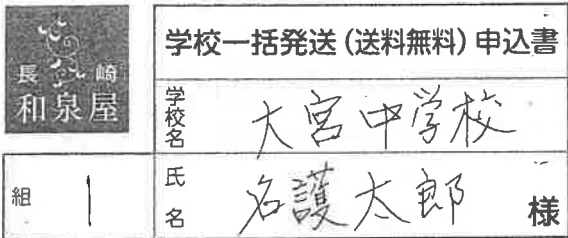 長崎
和泉屋
学校一括発送(送料無料)申込書
学校名
大宮中学校
組
1
氏名
名護太郎
様